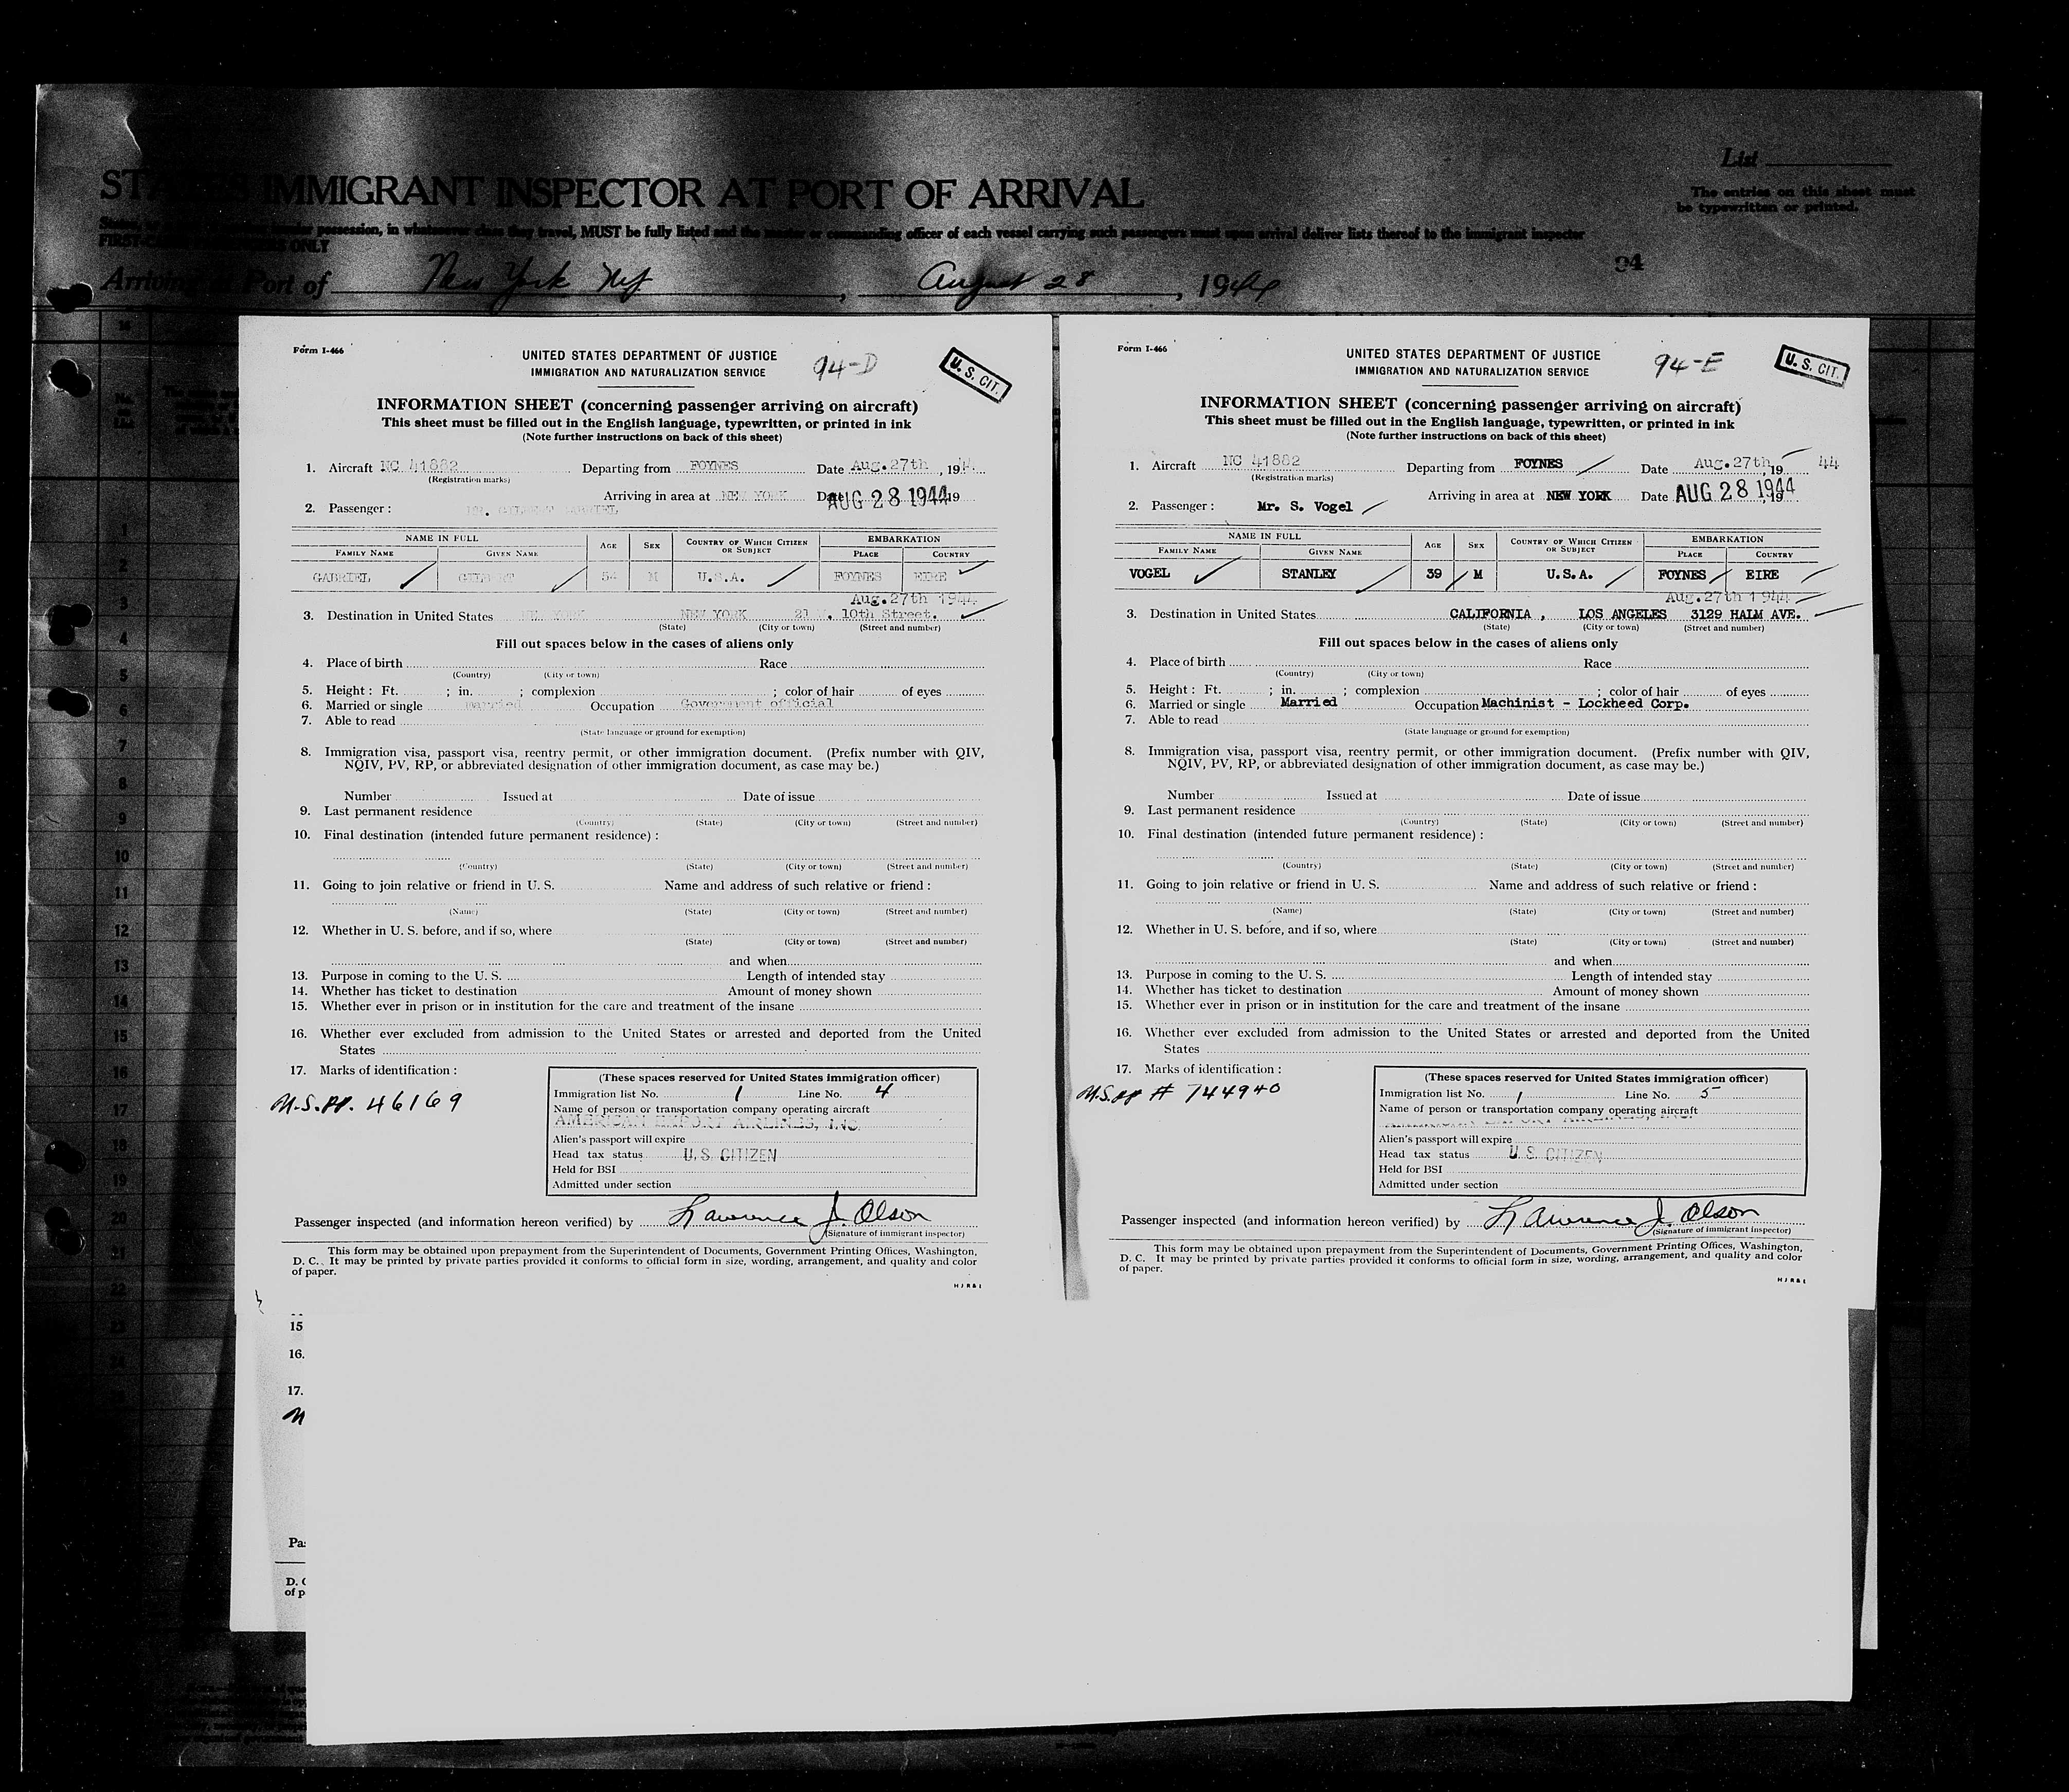 List
STATES IMMIGRANT INSPECTOR AT PORT OF ARRIVAL
The entries on this sheet must
be typewritten or printed.
possession, in whatsoever class they travel, MUST be fully listed and the master or commanding officer of each vessel carrying such passengers must upon arrival deliver lists thereof to the immigrant inspector
ONLY
94
Arriving at Port of New York NY, August 28, 1944
Form I-466
UNITED STATES DEPARTMENT OF JUSTICE
IMMIGRATION AND NATURALIZATION SERVICE
94-D
U. S. CIT.
INFORMATION SHEET (concerning passenger arriving on aircraft)
This sheet must be filled out in the English language, typewritten, or printed in ink
(Note further instructions on back of this sheet)
1. Aircraft NC 41882 Departing from FOYNES Date Aug.27th, 194
(Registration marks)
Arriving in area at NEW YORK Date AUG 28 1944 19
2. Passenger : GILBERT GABRIEL
NAME IN FULL AGE SEX COUNTRY OF WHICH CITIZEN OR SUBJECT EMBARKATION
FAMILY NAME GIVEN NAME PLACE COUNTRY
GABRIEL GILBERT 54 M U.S.A. FOYNES EIRE
Aug.27th 1944
3. Destination in United States NEW YORK NEW YORK 21 10th Street.
(State) (City or town) (Street and number)
Fill out spaces below in the cases of aliens only
4. Place of birth Race
(Country) (City or town)
5. Height : Ft. ; in. ; complexion ; color of hair of eyes
6. Married or single Married Occupation Government official
7. Able to read
(State language or ground for exemption)
8. Immigration visa, passport visa, reentry permit, or other immigration document. (Prefix number with QIV,
NQIV, PV, RP, or abbreviated designation of other immigration document, as case may be.)
Number Issued at Date of issue
9. Last permanent residence
(Country) (State) (City or town) (Street and number)
10. Final destination (intended future permanent residence) :
(Country) (State) (City or town) (Street and number)
11. Going to join relative or friend in U. S. Name and address of such relative or friend :
(Name) (State) (City or town) (Street and number)
12. Whether in U. S. before, and if so, where
(State) (City or town) (Street and number)
and when
13. Purpose in coming to the U. S. Length of intended stay
14. Whether has ticket to destination Amount of money shown
15. Whether ever in prison or in institution for the care and treatment of the insane
16. Whether ever excluded from admission to the United States or arrested and deported from the United
States
17. Marks of identification :
U.S.PP. 46169
(These spaces reserved for United States immigration officer)
Immigration list No. 1 Line No. 4
Name of person or transportation company operating aircraft
AMERICAN EXPORT AIRLINES, INC.
Alien's passport will expire
Head tax status U.S. CITIZEN
Held for BSI
Admitted under section
Passenger inspected (and information hereon verified) by Lawrence J. Olson
(Signature of immigrant inspector)
This form may be obtained upon prepayment from the Superintendent of Documents, Government Printing Offices, Washington,
D. C. It may be printed by private parties provided it conforms to official form in size, wording, arrangement, and quality and color
of paper.
H J R & I
Form I-466
UNITED STATES DEPARTMENT OF JUSTICE
IMMIGRATION AND NATURALIZATION SERVICE
94-E
U. S. CIT.
INFORMATION SHEET (concerning passenger arriving on aircraft)
This sheet must be filled out in the English language, typewritten, or printed in ink
(Note further instructions on back of this sheet)
1. Aircraft NC 41882 Departing from FOYNES Date Aug.27th, 19 44
(Registration marks)
Arriving in area at NEW YORK Date AUG 28 1944, 19
2. Passenger : Mr. S. Vogel
NAME IN FULL AGE SEX COUNTRY OF WHICH CITIZEN OR SUBJECT EMBARKATION
FAMILY NAME GIVEN NAME PLACE COUNTRY
VOGEL STANLEY 39 M U.S.A. FOYNES EIRE
Aug.27th 1944
3. Destination in United States CALIFORNIA, LOS ANGELES 3129 HALM AVE.
(State) (City or town) (Street and number)
Fill out spaces below in the cases of aliens only
4. Place of birth Race
(Country) (City or town)
5. Height : Ft. ; in. ; complexion ; color of hair of eyes
6. Married or single Married Occupation Machinist - Lockheed Corp.
7. Able to read
(State language or ground for exemption)
8. Immigration visa, passport visa, reentry permit, or other immigration document. (Prefix number with QIV,
NQIV, PV, RP, or abbreviated designation of other immigration document, as case may be.)
Number Issued at Date of issue
9. Last permanent residence
(Country) (State) (City or town) (Street and number)
10. Final destination (intended future permanent residence) :
(Country) (State) (City or town) (Street and number)
11. Going to join relative or friend in U. S. Name and address of such relative or friend :
(Name) (State) (City or town) (Street and number)
12. Whether in U. S. before, and if so, where
(State) (City or town) (Street and number)
and when
13. Purpose in coming to the U. S. Length of intended stay
14. Whether has ticket to destination Amount of money shown
15. Whether ever in prison or in institution for the care and treatment of the insane
16. Whether ever excluded from admission to the United States or arrested and deported from the United
States
17. Marks of identification :
U.S.PP # 744940
(These spaces reserved for United States immigration officer)
Immigration list No. 1 Line No. 5
Name of person or transportation company operating aircraft
AMERICAN EXPORT AIRLINES, INC.
Alien's passport will expire
Head tax status U.S. CITIZEN
Held for BSI
Admitted under section
Passenger inspected (and information hereon verified) by Lawrence J. Olson
(Signature of immigrant inspector)
This form may be obtained upon prepayment from the Superintendent of Documents, Government Printing Offices, Washington,
D. C. It may be printed by private parties provided it conforms to official form in size, wording, arrangement, and quality and color
of paper.
H J R & I
15
16.
17.
Pas
D. C
of p